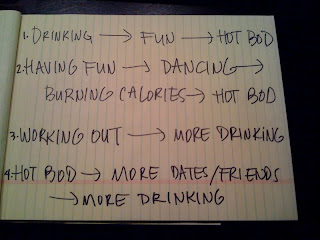 1. DRINKING → FUN → HOT BOD
2. HAVING FUN → DANCING →
BURNING CALORIES → HOT BOD
3. WORKING OUT → MORE DRINKING
4. HOT BOD → MORE DATES/FRIENDS
→ MORE DRINKING